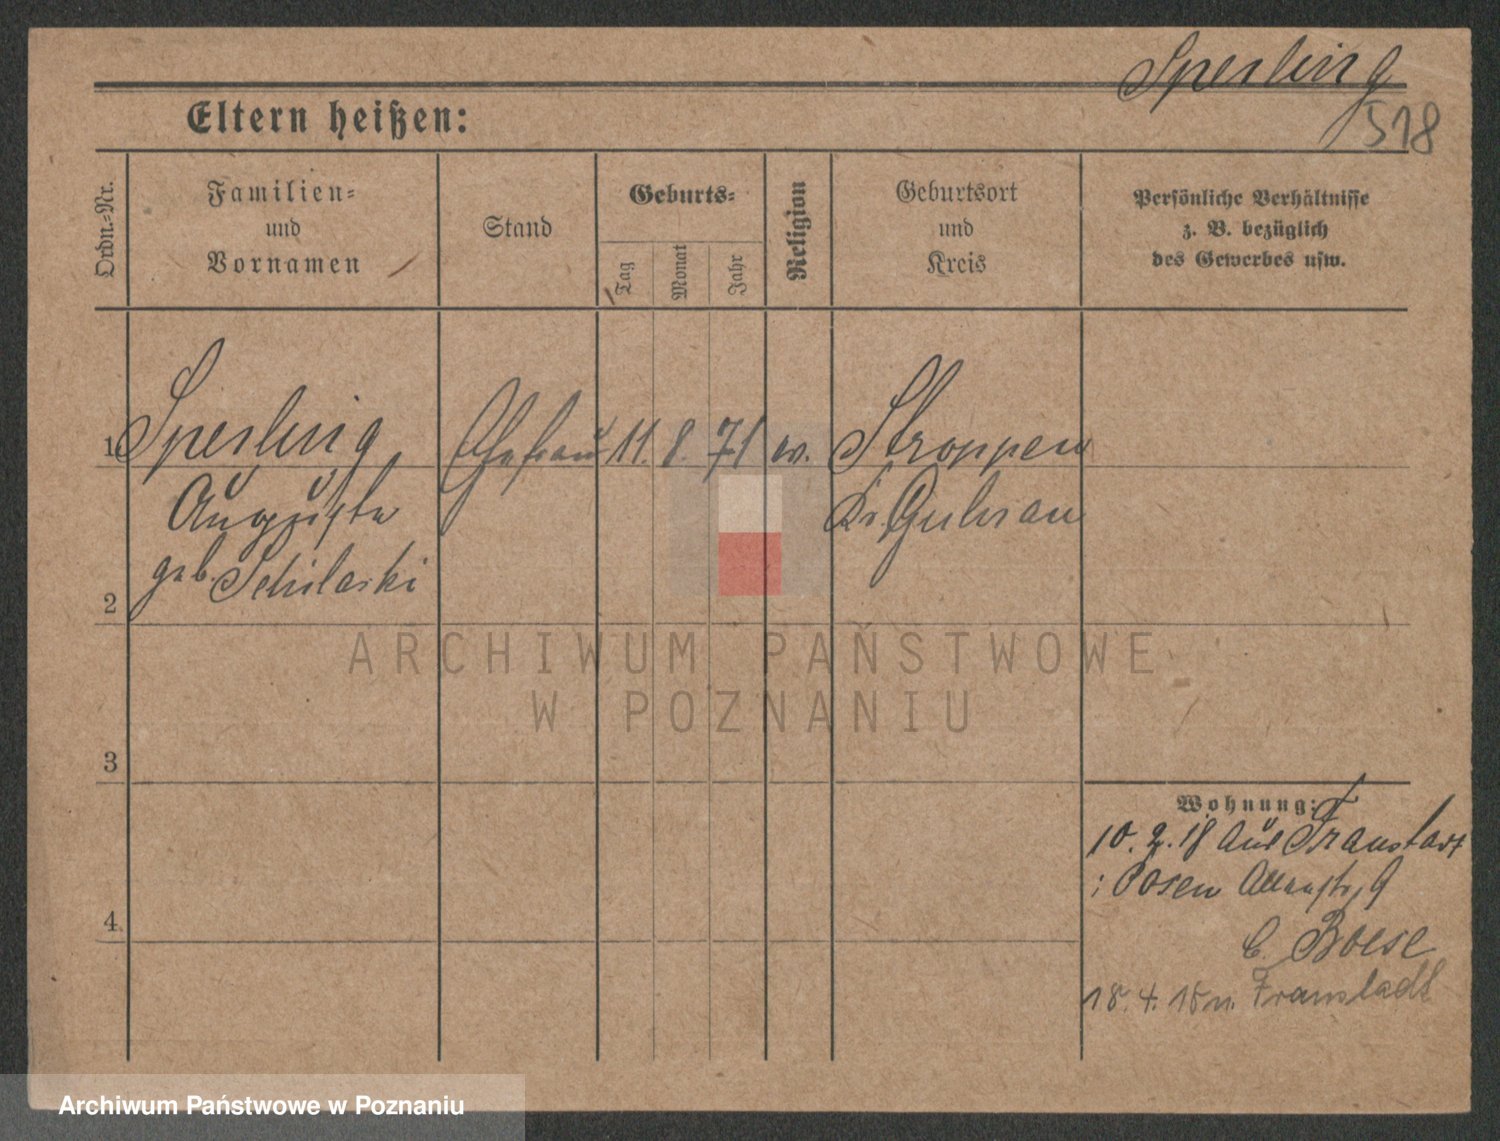 Sperling
518
Eltern heißen:
Ordn.-Nr.
Familien-
und
Vornamen
Stand
Geburts-
Tag
Monat
Jahr
Religion
Geburtsort
und
Kreis
Persönliche Verhältnisse
z. B. bezüglich
des Gewerbes usw.
1 Sperling Ehefrau 11. 8. 71 ev. Stroppen
Auguste Kr. Guhrau
geb.
2
ARCHIWUM PAŃSTWOWE
W POZNANIU
3
Wohnung:
10. 2. 18 aus Fraustadt
Posen 9
b. Boese
18. 4. 18 n. Fraustadt
4
Archiwum Państwowe w Poznaniu